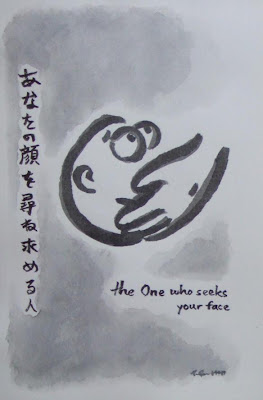 あなたの顔を尋ね求める人
the One who seeks
your face